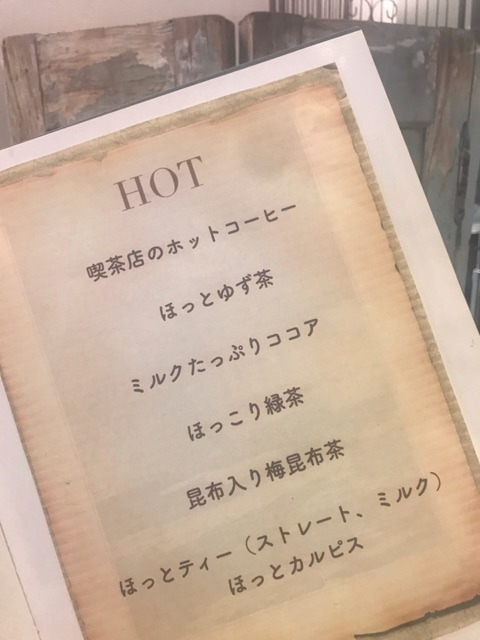 HOT
喫茶店のホットコーヒー
ほっとゆず茶
ミルクたっぷりココア
ほっこり緑茶
昆布入り梅昆布茶
ほっとティー（ストレート、ミルク）
ほっとカルピス